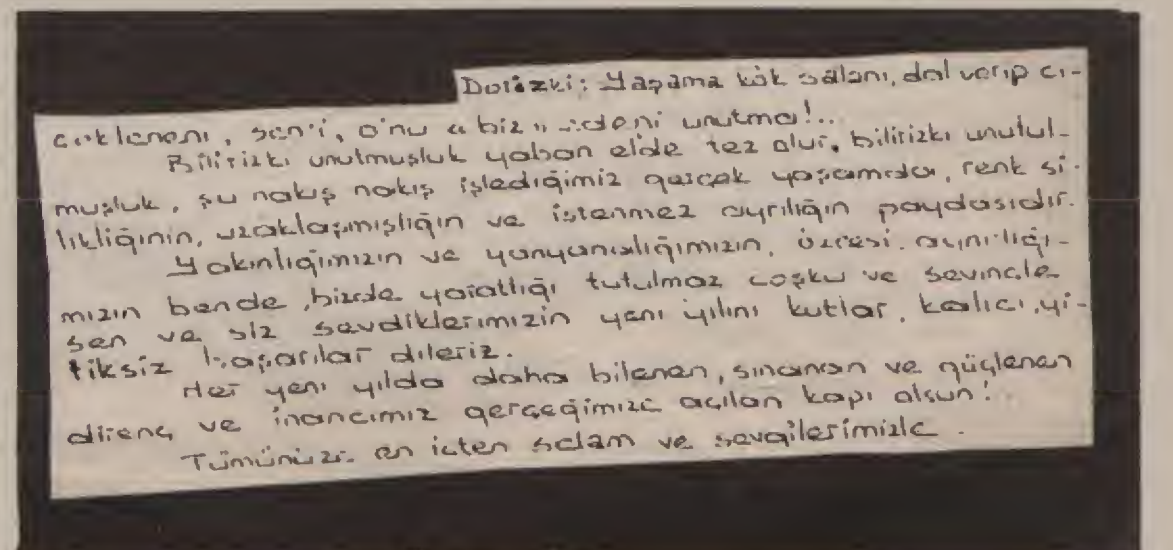 Deriz ki: Yaşama kök salanı, dal verip çi-
çekleneni, sen'i, o'nu « biz » edeni unutma!..
Biliriz ki unutmuşluk yaban elde tez olur, biliriz ki unutul-
muşluk, şu nakış nakış işlediğimiz gerçek yaşamda, renk si-
likliğinin, uzaklaşmışlığın ve istenmez ayrılığın paydasıdır.
Yakınlığımızın ve yanyanalığımızın, özcesi aynılığı-
mızın bende, bizde yarattığı tutulmaz coşku ve sevinçle
sen ve siz sevdiklerimizin yeni yılını kutlar, kalıcı, yi-
tiksiz başarılar dileriz.
Her yeni yılda daha bilenen, sınanan ve güçlenen
direnç ve inancımız gerçeğimize açılan kapı olsun!..
Tümünüze en içten selam ve sevgilerimizle.